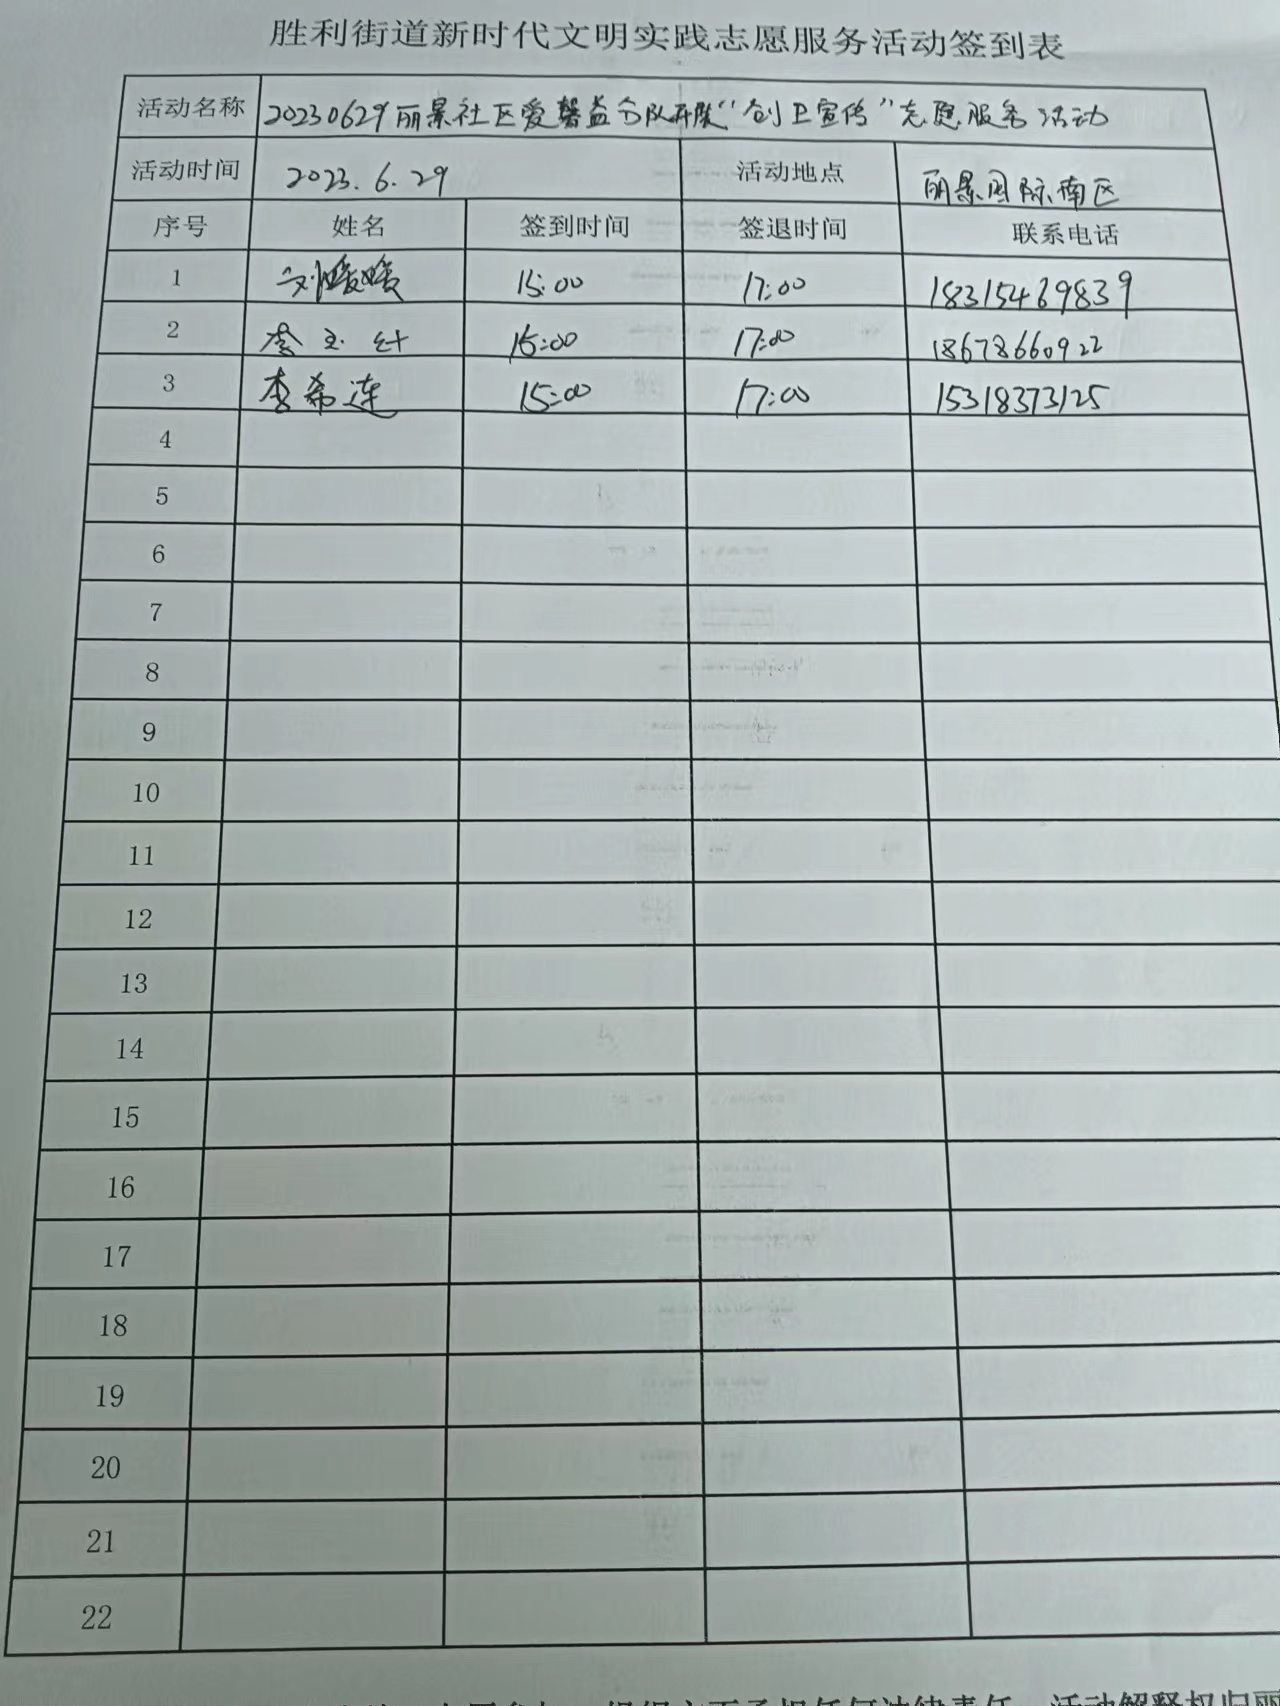 胜利街道新时代文明实践志愿服务活动签到表
活动名称 20230629丽景社区爱馨益分队开展“创卫宣传”志愿服务活动
活动时间 2023.6.29 活动地点 丽景国际南区
序号 姓名 签到时间 签退时间 联系电话
1 刘媛媛 15:00 17:00 18315469839
2 李玉 15:00 17:00 18678660922
3 李希连 15:00 17:00 15318373125
4
5
6
7
8
9
10
11
12
13
14
15
16
17
18
19
20
21
22
承担任何法律责任，活动解释权归丽